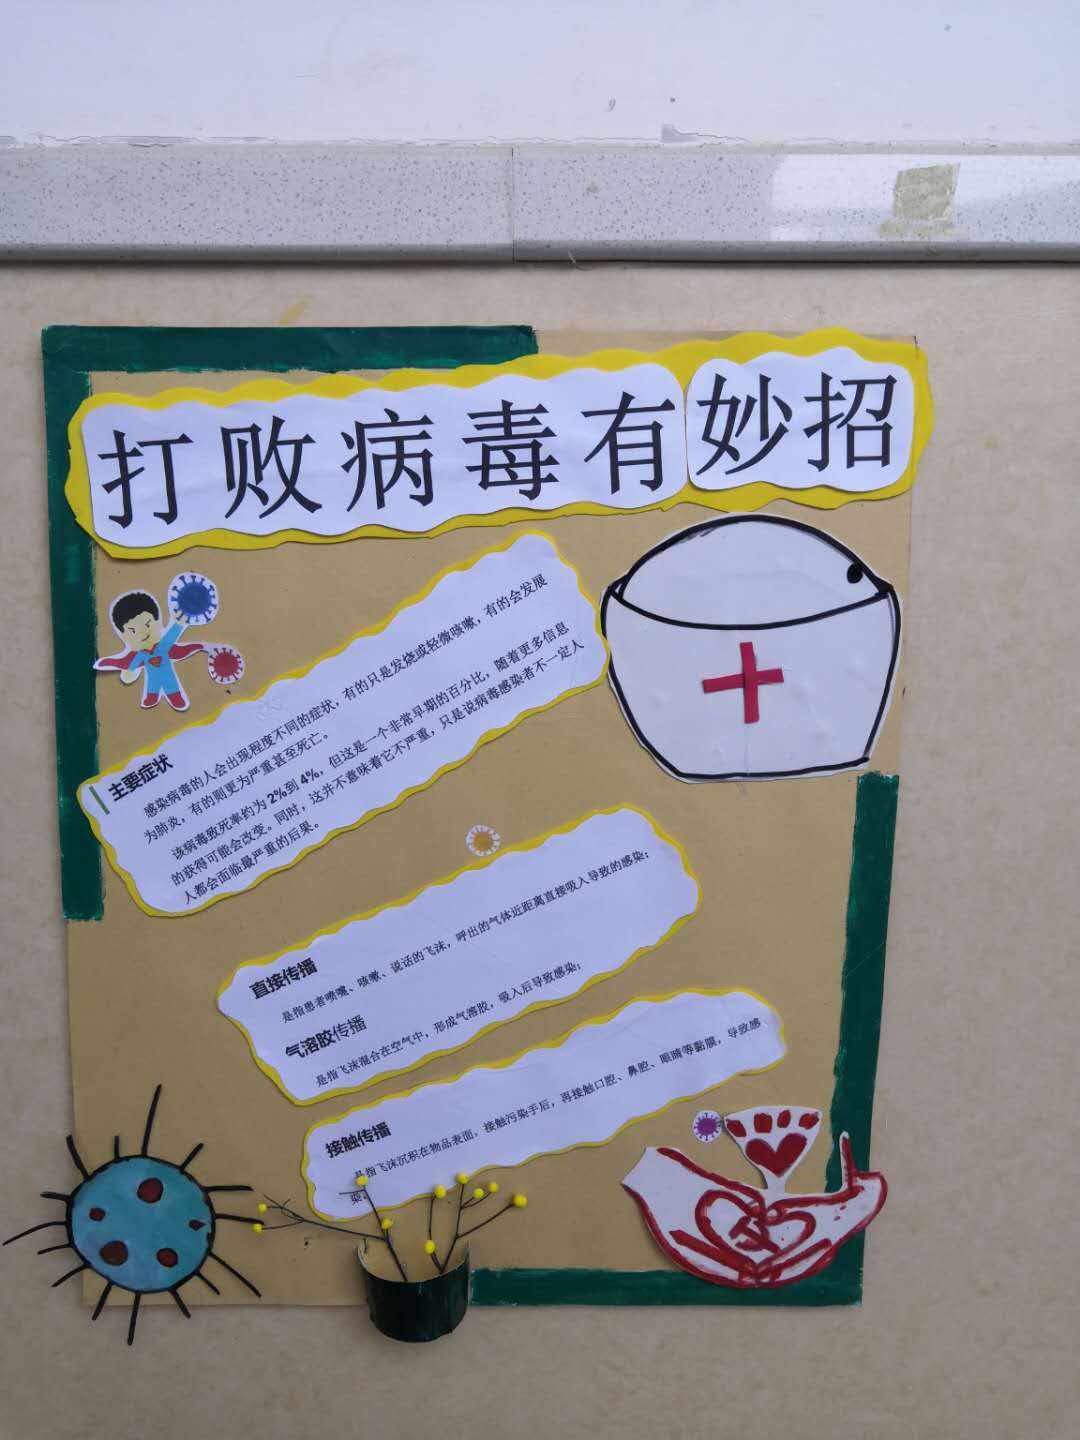 打败病毒有妙招
主要症状
感染病毒的人会出现程度不同的症状，有的只是发烧或轻微咳嗽，有的会发展
为肺炎，有的则更为严重甚至死亡。
该病毒致死率约为 2%到 4%，但这是一个非常早期的百分比，随着更多信息
的获得可能会改变。同时，这并不意味着它不严重，只是说病毒感染者不一定人
人都会面临最严重的后果。
直接传播
是指患者喷嚏、咳嗽、说话的飞沫，呼出的气体近距离直接吸入导致的感染；
气溶胶传播
是指飞沫混合在空气中，形成气溶胶，吸入后导致感染；
接触传播
是指飞沫沉积在物品表面，接触污染手后，再接触口腔、鼻腔、眼睛等黏膜，导致感
染